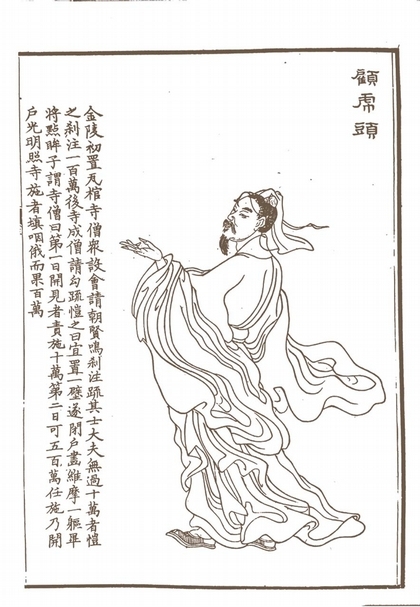 顧虎頭
金陵初置瓦棺寺僧眾設會請朝賢鳴剎注疏其士大夫無過十萬者愷
之剎注一百萬後寺成僧請勾疏愷之曰宜置一壁遂閉戶畫維摩一軀畢
將點眸子謂寺僧曰第一日開見者責施十萬第二日可五百萬任施乃開
戶光明照寺施者填咽俄而果百萬